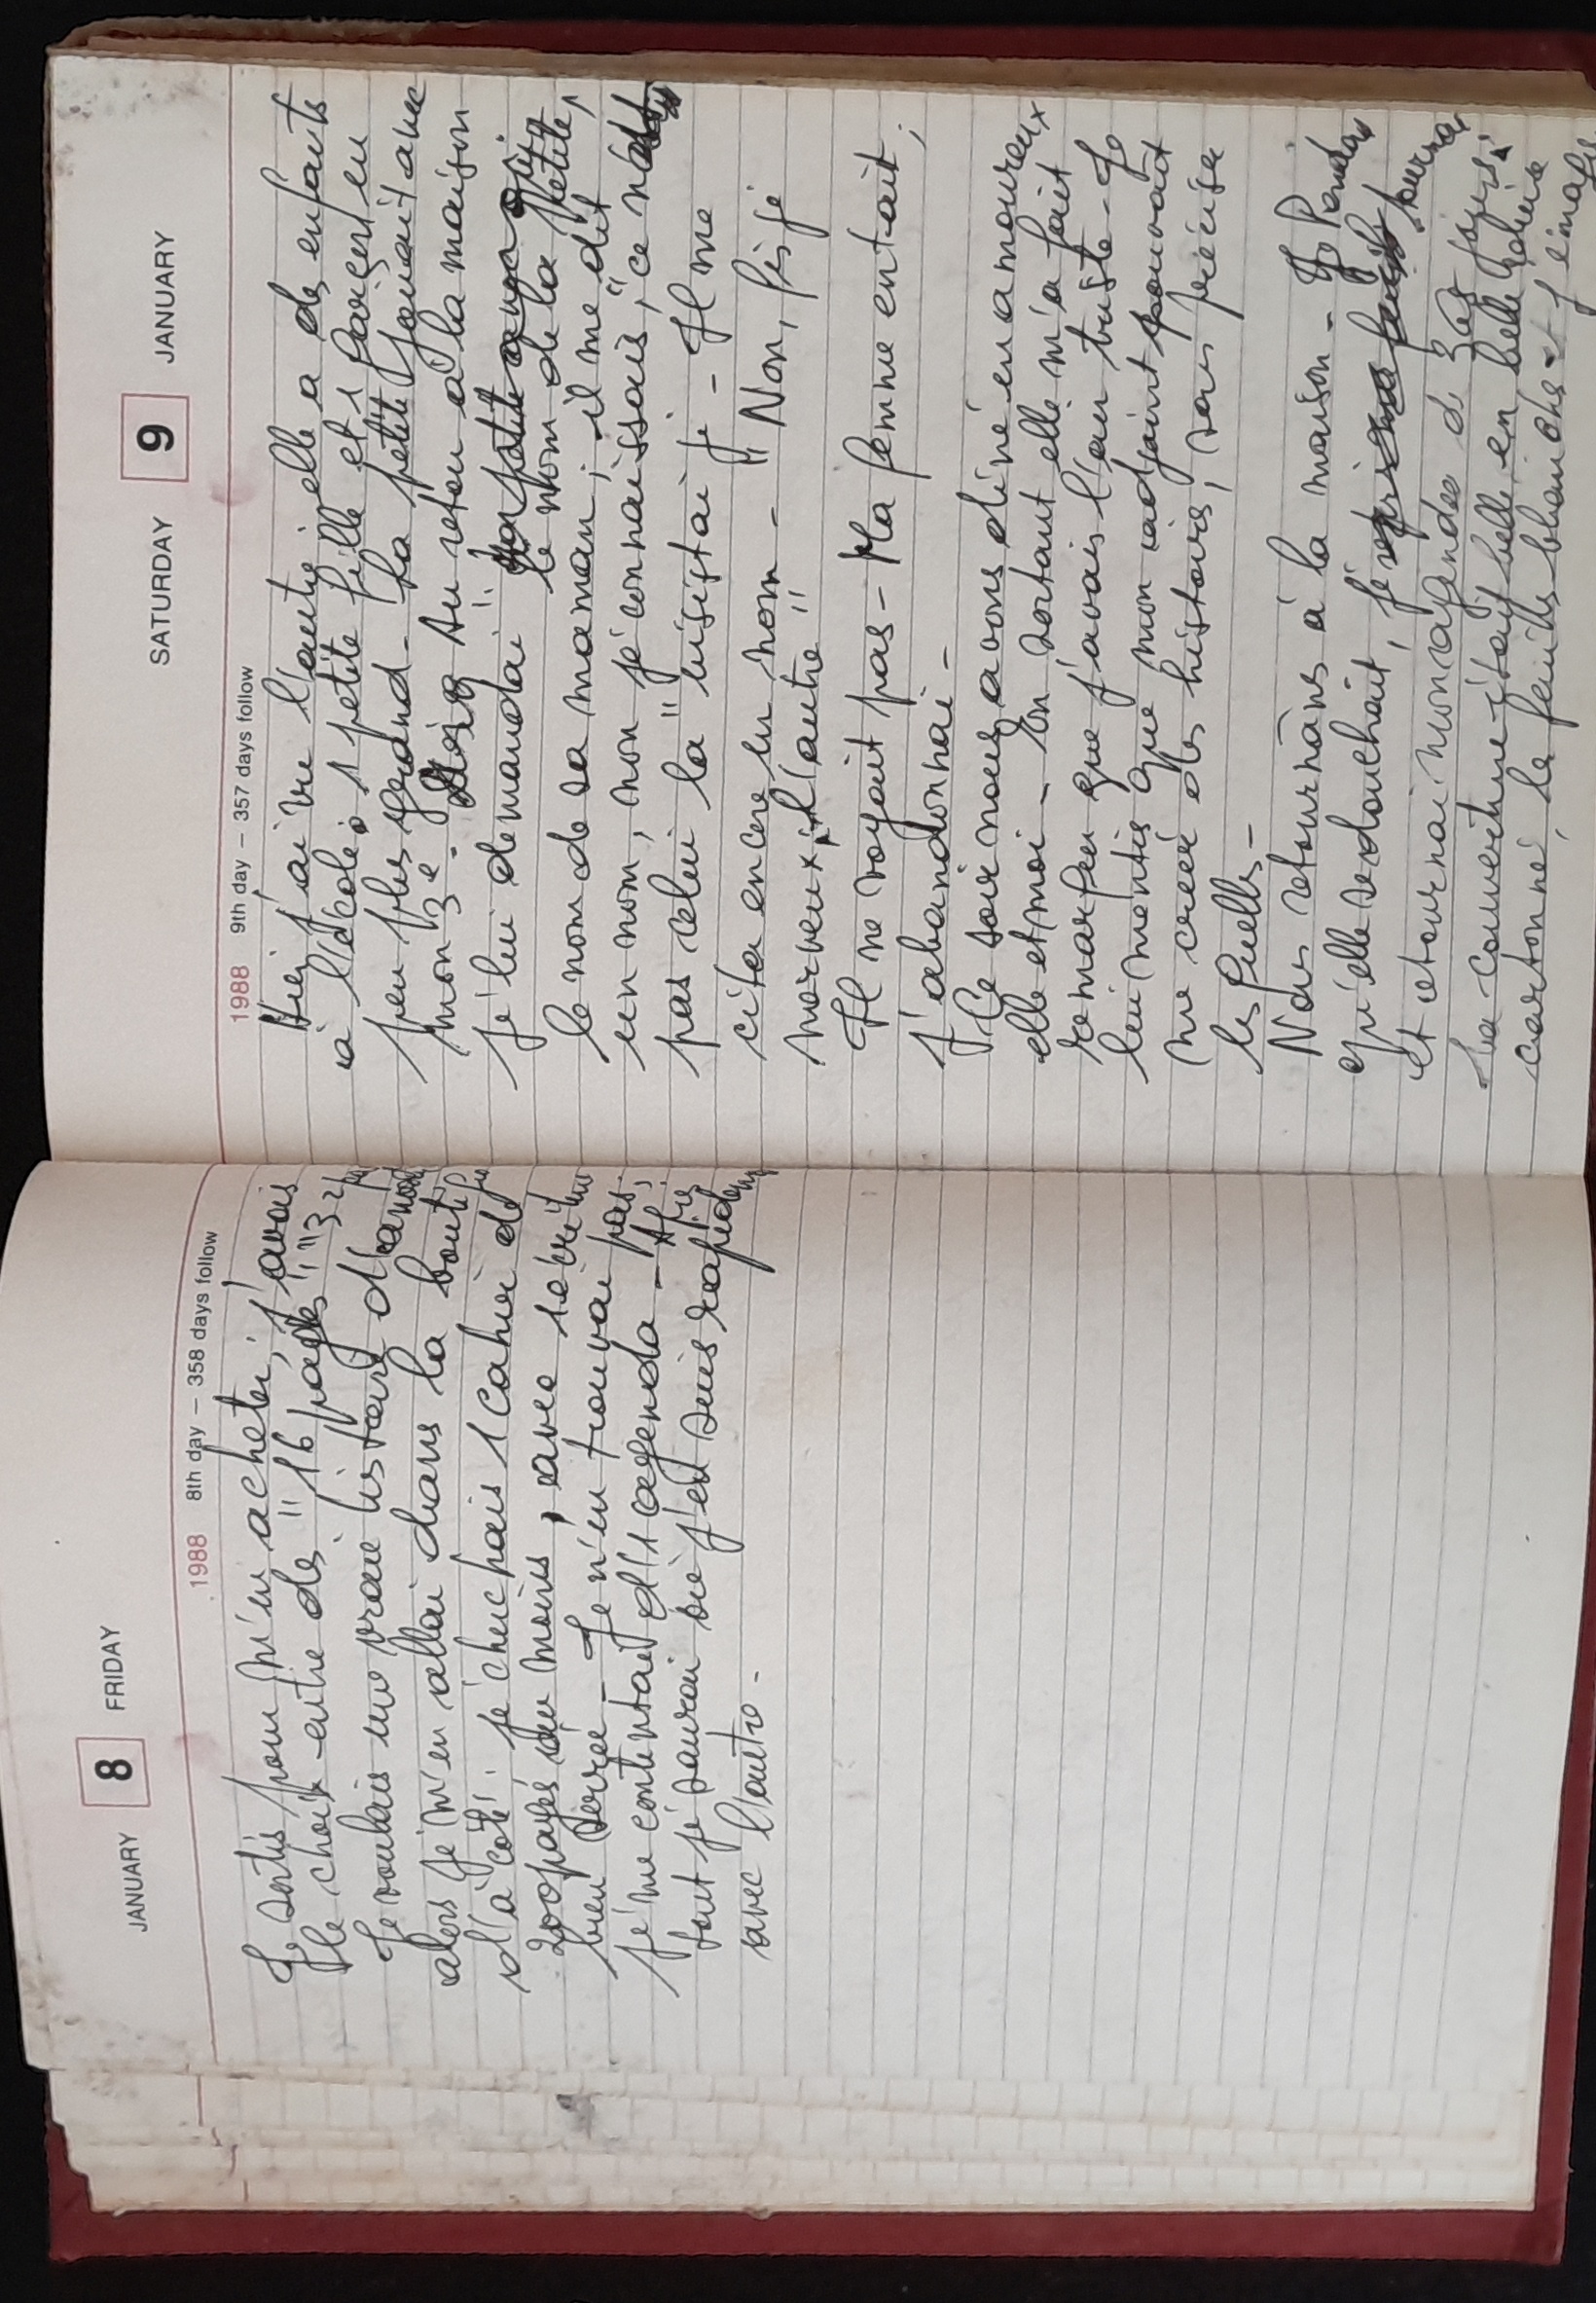 JANUARY 8 FRIDAY
1988 8th day – 358 days follow
Je sortis pour m'en acheter, j'avais
le choix entre des "16 pages", "32
Je voulais une vraie histoire d'
alors je m'en allai dans la boutique
d'à coté : je cherchais 1 cahier de
200 pages au moins, avec 1 écriture
bien serrée - Je n'en trouvai pas,
je me contentai d'1 agenda -
tout je saurai si j'en suis rapide
avec l'autre -
SATURDAY 9 JANUARY
1988 9th day – 357 days follow
Hier j'ai vu l'autre, elle a des enfants
à l'école : 1 petite fille et 1 garçon un
peu plus grand - La petite jouait avec
mon 3e - Au retour à la maison
je lui demandai "
le nom de la petite,
le nom de sa maman ; il me dit
un nom, non je connaissais, "ce n'est
pas celui là" insistai je - Il me
cita encore un nom - " Non, fis je
nerveux, l'autre"
Il ne voyait pas - Ma femme entrait ;
j'abandonnai -
Ce soir nous avons dîné en amoureux
elle et moi - En sortant elle m'a fait
remarquer que j'avais l'air triste - Je
lui mentis que mon adjoint pouvait
me créer des histoires, sans préciser
lesquelles -
Nous retournâmes à la maison - Pendant
qu'elle se douchait, je
et retournai mon agenda d
La couverture était belle, en belle
cartonné, les feuilles blanches et j'